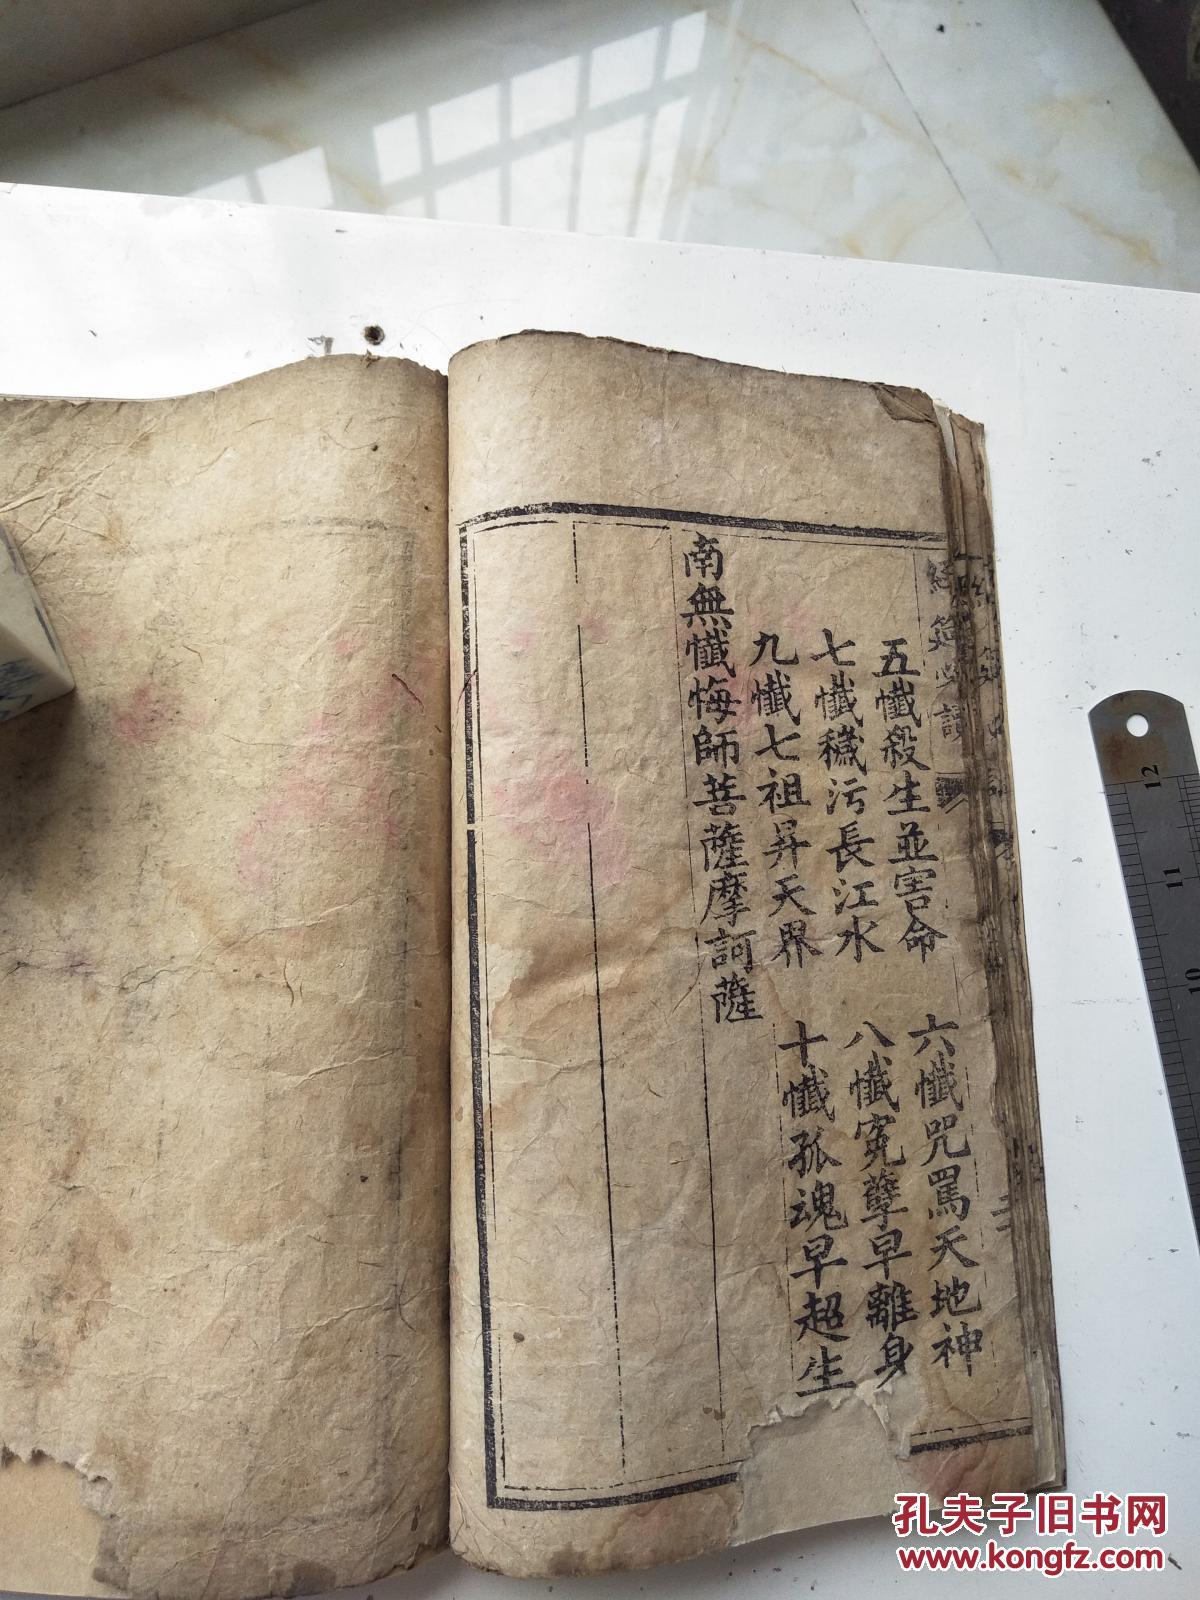 五懺殺生並害命 六懺咒罵天地神
七懺穢污長江水 八懺寃孽早離身
九懺七祖昇天界 十懺孤魂早超生
南無懺悔師菩薩摩訶薩
12
11
10
孔夫子旧书网
www.kongfz.com